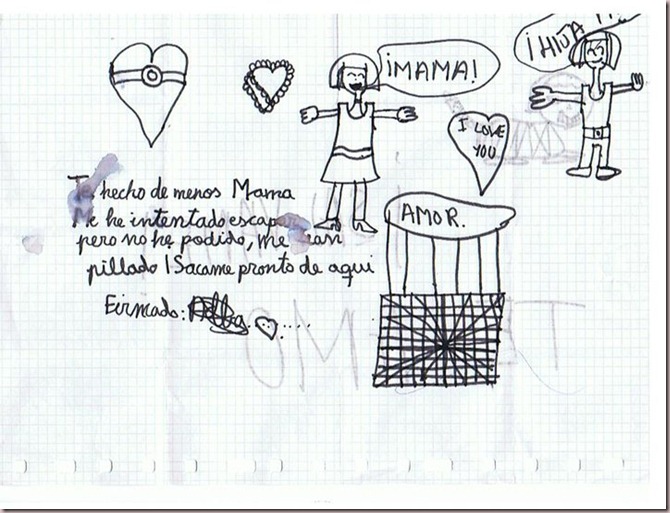 ¡MAMA!
¡HIJA !!
I LOVE
YOU
Te hecho de menos Mama
Me he intentado escapar
pero no he podido, me han
pillado ¡Sacame pronto de aqui
AMOR.
Firmado:
TE AMO